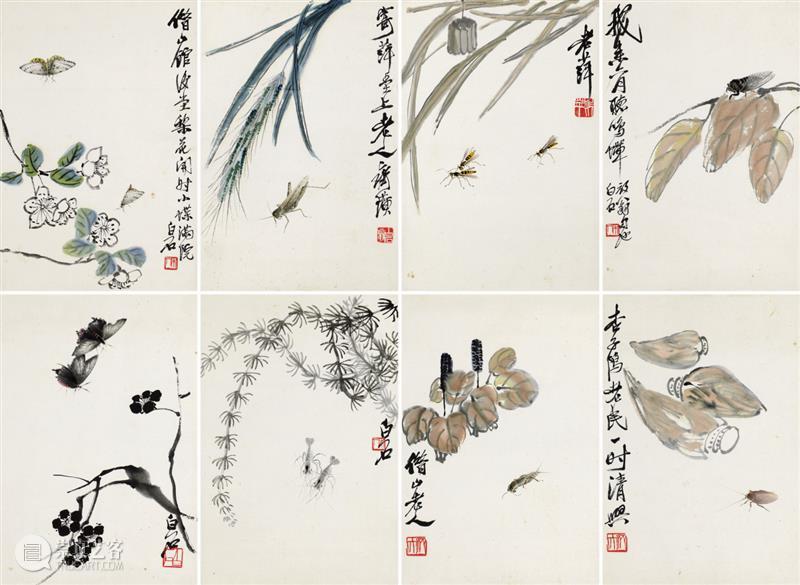 借山館後堂梨花開時小蝶滿院
白石
寄萍堂上老人齊璜
老萍
聽鳴蟬
放翁句也
白石
白石
白石
借山老人
杏子隖老民一時清興